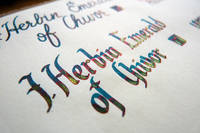 J. Herbin Emerald
of Chivor
J. Herbin Emerald
of Chivor